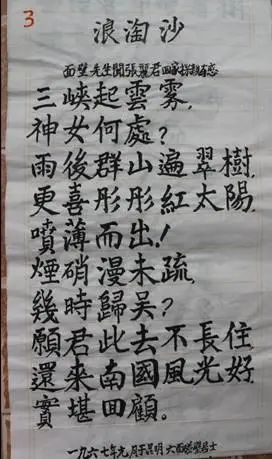 3
浪淘沙
面壁先生聞張麗君回家探親有感
三峽起雲霧,
神女何處?
雨後群山遍翠樹,
更喜彤彤紅太陽,
噴薄而出!
煙硝漫未疏,
幾時歸吴?
願君此去不長住,
還來南國風光好,
實堪回顧。
一九六七年九月于昆明 六面壁居士